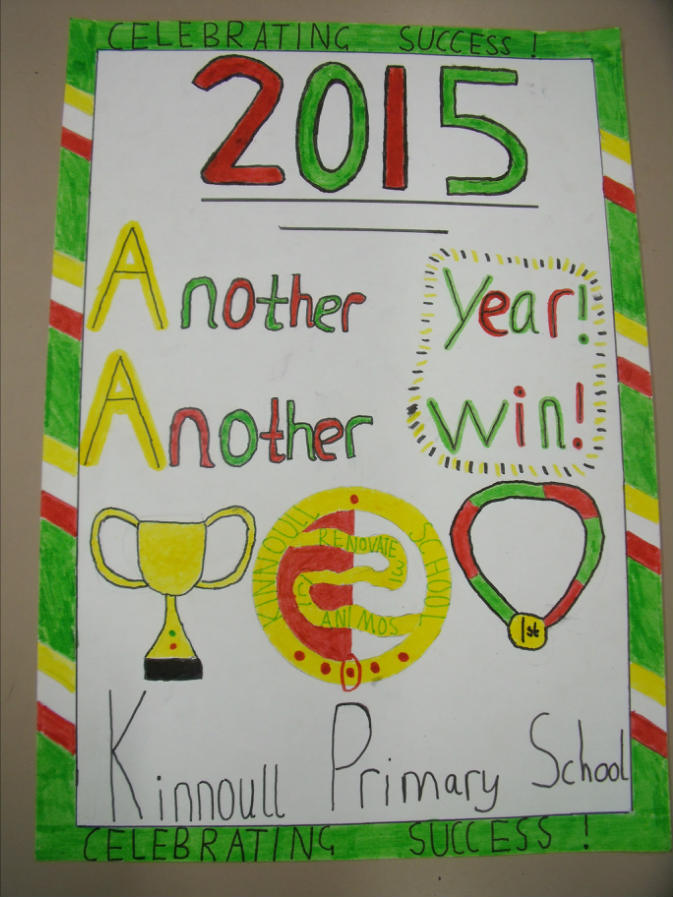 CELEBRATING SUCCESS!
2015
Another Year!
Another win!
KINNOULL SCHOOL
RENOVATE
ANIMOS
1st
Kinnoull Primary School
CELEBRATING SUCCESS!